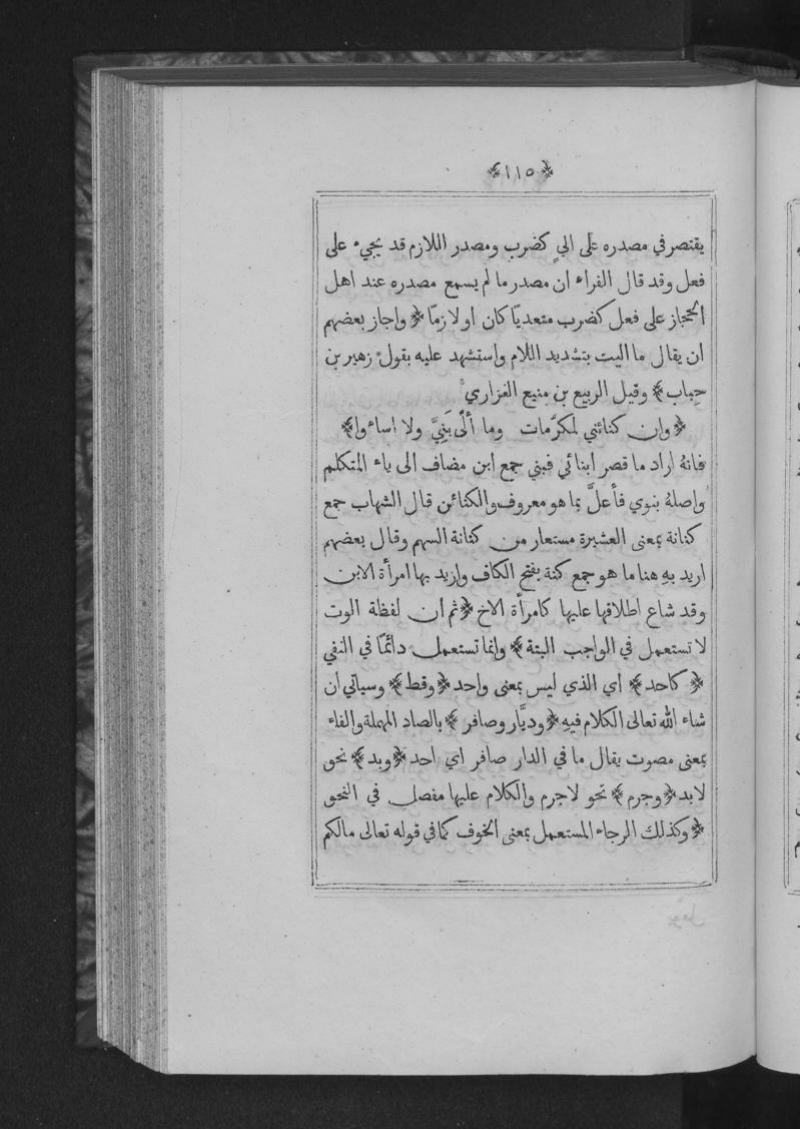 ﴿١١٥﴾
يقتصر في مصدره على الي كضرب ومصدر اللازم قد يجيء على
فعل وقد قال الفراء ان مصدر ما لم يسمع مصدره عند اهل
الحجاز على فعل كضرب متعديًا كان او لازمًا ﴿واجاز بعضهم
ان يقال ما اليت بتشديد اللام واستشهد عليه بقول زهير بن
جباب﴾ وقيل الربيع بن منيع الفزاري
﴿وان كنائني لمكرَّمات وما ألَّى بَنِيَّ ولا اساءوا﴾
فانهُ اراد ما قصر ابنائي فبني جمع ابن مضاف الى ياء المتكلم
واصلهُ بنوي فأعلَّ بما هو معروف والكنائن قال الشهاب جمع
كنانة بمعنى العشيرة مستعار من كنانة السهم وقال بعضهم
اريد بهِ هنا ما هو جمع كنة بفتح الكاف واريد بها امرأة الابن
وقد شاع اطلاقها عليها كامرأة الاخ ﴿ثم ان لفظة الوت
لا تستعمل في الواجب البتة﴾ وانما تستعمل دائمًا في النفي
﴿كاحد﴾ اي الذي ليس بمعنى واحد ﴿وقط﴾ وسياتي ان
شاء الله تعالى الكلام فيهِ ﴿وديَّار وصافر﴾ بالصاد المهملة والفاء
بمعنى مصوت يقال ما في الدار صافر اي احد ﴿وبد﴾ نحو
لابد ﴿وجرم﴾ نحو لاجرم والكلام عليها مفصل في النحو
﴿وكذلك الرجاء المستعمل بمعنى الخوف كما في قوله تعالى مالكم